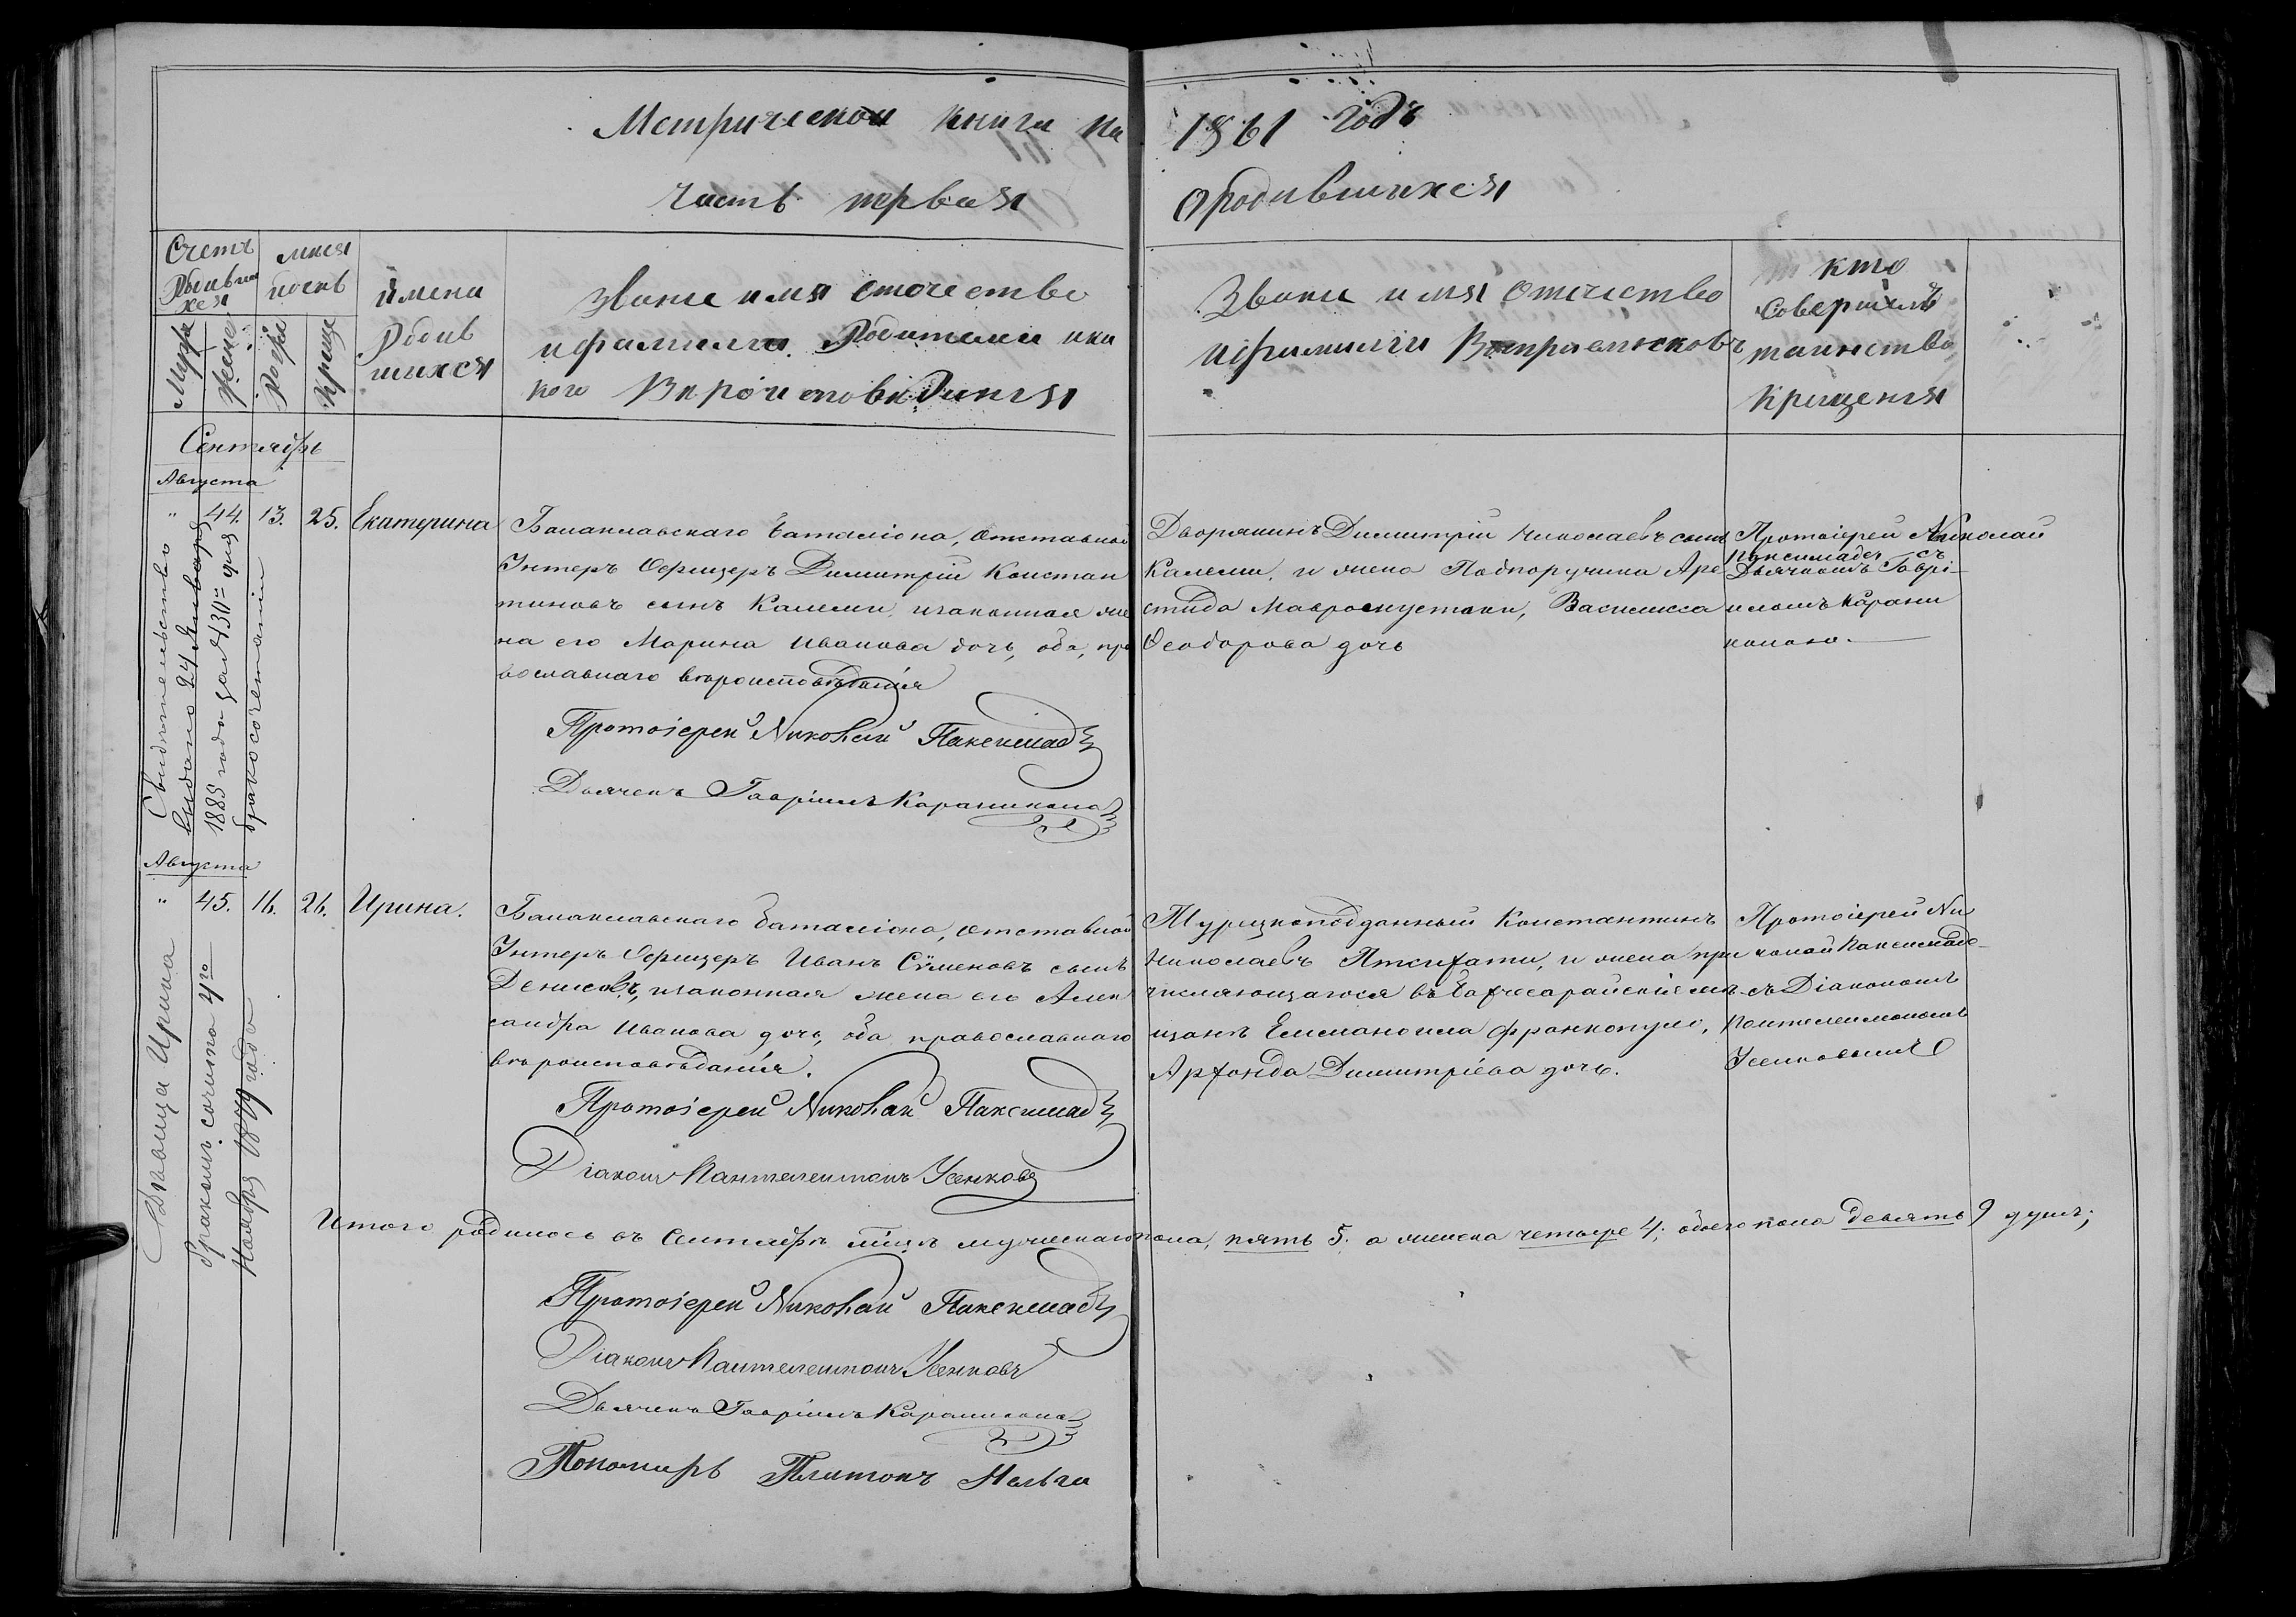 Метрической книги на 1861 годъ
часть первая о родившихся
Счетъ родившихся
Мужес
Женс
мѣсяц
Рожд
Крище
имена
Родив
шихся
Званіе имя отчество
и фамилія Родителей и ка
кого Вѣроисповѣданія
Званіе имя отчество
и фамиліи Воспріемниковъ
кто
совершилъ
таинство
крищенія
Сентябрь
Августа
" 44. 13. 25. Екатерина
Балаклавскаго баталіона, отставной
Унтеръ Офицеръ Димитрій Констан
тиновъ сынъ Калеми, и законная же
на его Марина Иванова дочь, оба, пра
вославнаго вѣроисповѣданія
Протоіерей Николай Паксимад
Дьячекъ Гавріилъ Караникола
Дворянинъ Димитрій Николаевъ сынъ
Калеми, и жена Подпоручика Ари
стида Мавромустаки, Василисса
Феодорова дочь
Протоіерей Николай
Паксимади съ
Дьячкомъ Гаврі-
иломъ Карани
колою.
Свидѣтельство
выдано 24 Января
1885 года за № 431 для
бракосочетанія
Августа
" 45. 16. 26. Ирина.
Балаклавскаго баталіона, отставной
Унтеръ Офицеръ Иванъ Сименовъ сынъ
Денисовъ, и законная жена его Алек
сандра Иванова дочь, оба православнаго
вѣроисповѣданія.
Протоіерей Николай Паксимад
Діаконъ Пантелеимонъ Усенковъ
Турецкоподданный Константинъ
Николаевъ , и жена при
числяющагося въ Бахчесарайскіе мѣ
щане Еммануила Франкопуло,
Димитріева дочь.
Протоіерей Ни
колай Паксимади
съ Діакономъ
Пантелеимономъ
Усенковымъ
Дѣвица Ирина
бракомъ сочитана 4го
Ноября 1879 года
Итого родилось въ Сентябрѣ мѣсц мужескаго пола, пять 5; а женска четыре 4; обоего пола девять 9 душъ;
Протоіерей Николай Паксимад
Діаконъ Пантелеимонъ Усенковъ
Дьячекъ Гавріилъ Караникола
Пономарь Платонъ